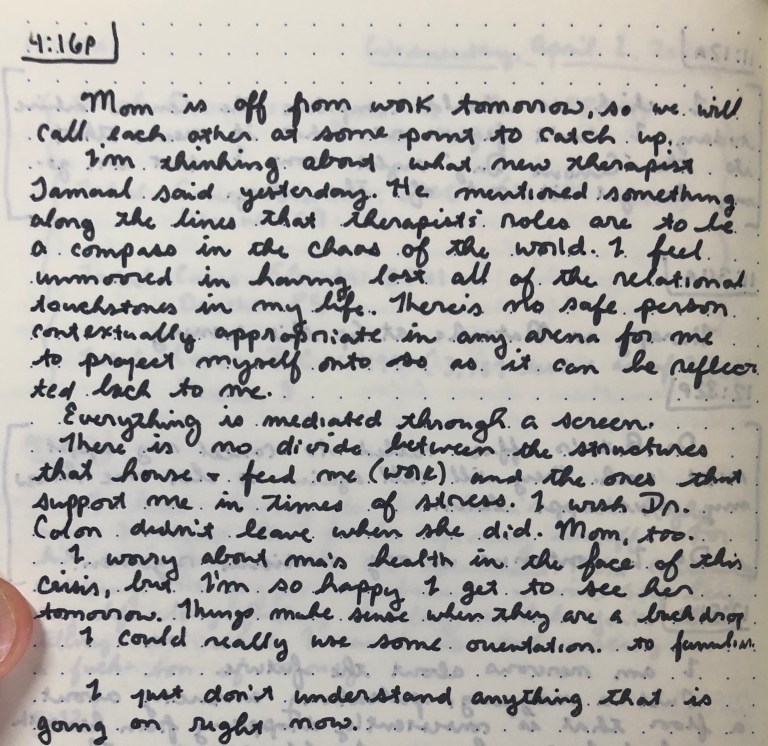 4:16P
Mom is off from work tomorrow, so we will
call each other at some point to catch up.
I'm thinking about what new therapist
Jamaal said yesterday. He mentioned something
along the lines that therapists' roles are to be
a compass in the chaos of the world. I feel
unmoored in having lost all of the relational
touchstones in my life. There is no safe person
contextually appropriate in any arena for me
to project myself onto so as it can be reflec-
ted back to me.
Everything is mediated through a screen.
There is no divide between the structures
that house + feed me (work) and the ones that
support me in times of stress. I wish Dr.
Colon didn't leave when she did. Mom, too.
I worry about ma's health in the face of this
crisis, but I'm so happy I get to see her
tomorrow. Things make sense when they are a backdrop
I could really use some orientation. to familiar.
I just don't understand anything that is
going on right now.